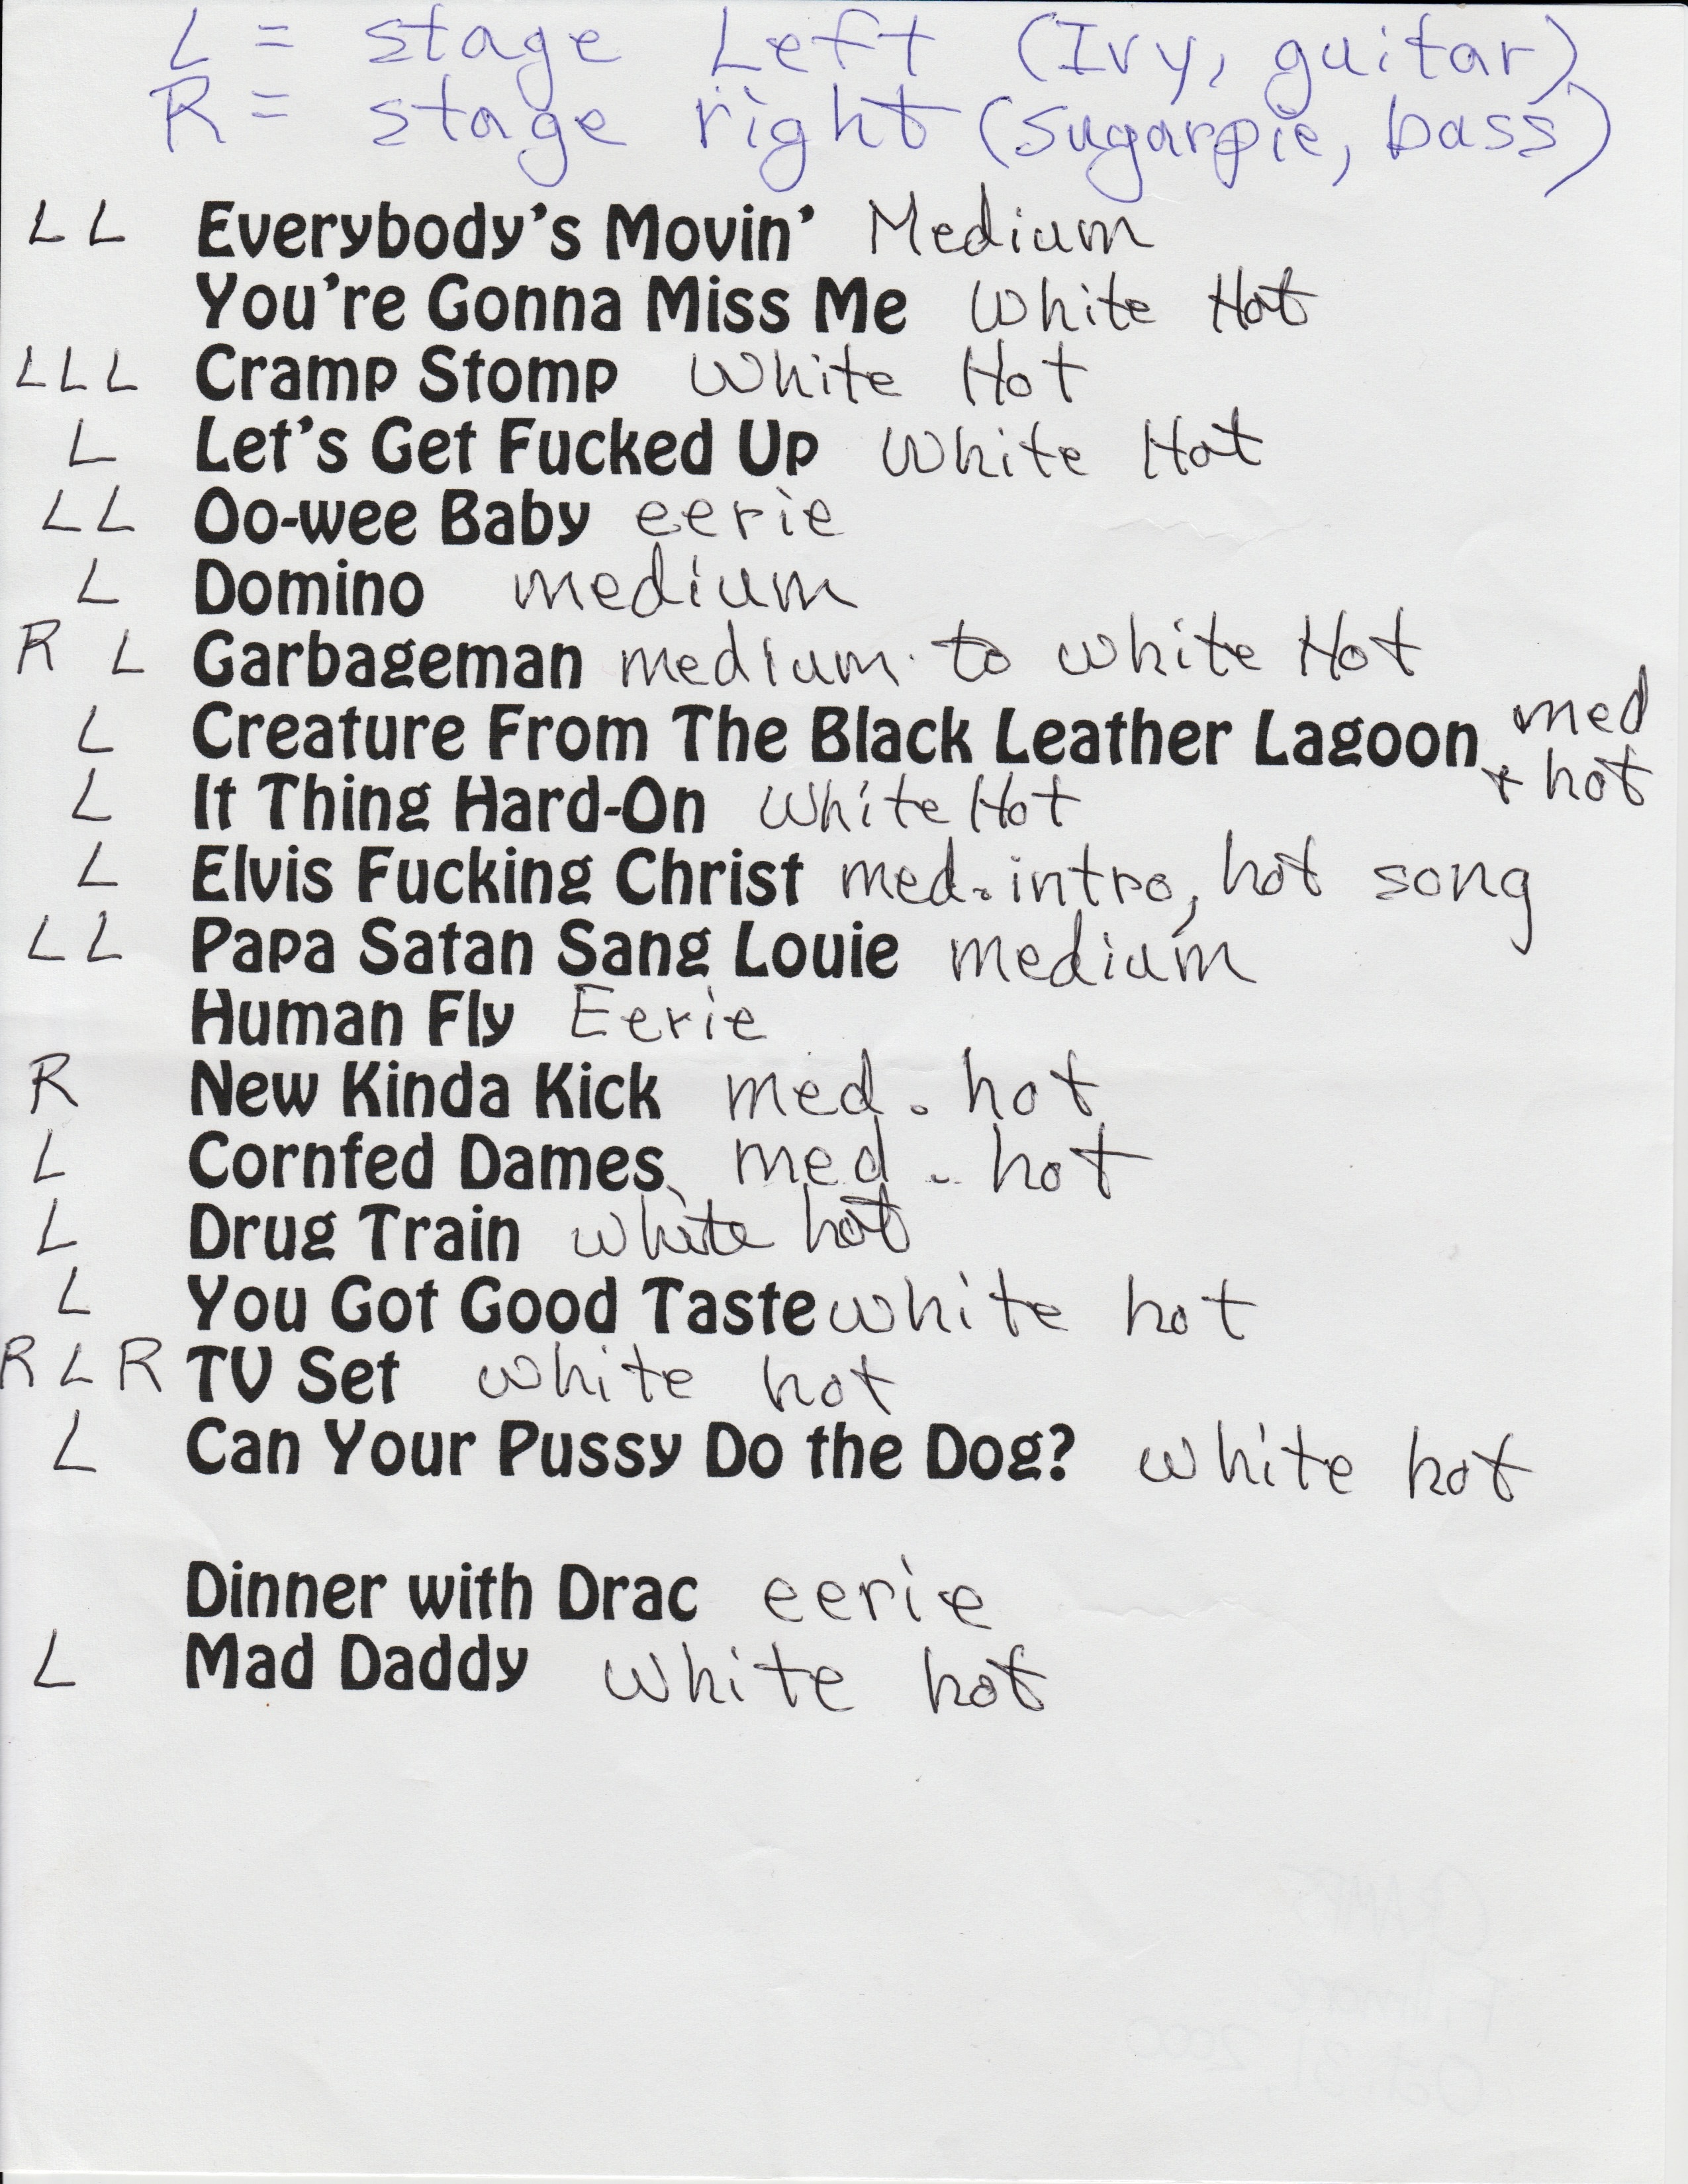 L = stage Left (Ivy, guitar)
R = stage right (sugarpie, bass)
L L Everybody's Movin' Medium
You're Gonna Miss Me White Hot
L L L Cramp Stomp White Hot
L Let's Get Fucked Up White Hot
L L Oo-wee Baby eerie
L Domino medium
R L Garbageman medium to white Hot
L Creature From The Black Leather Lagoon med
+ hot
L It Thing Hard-On White Hot
L Elvis Fucking Christ med. intro, hot song
L L Papa Satan Sang Louie medium
Human Fly Eerie
R New Kinda Kick med. hot
L Cornfed Dames med. hot
L Drug Train white hot
L You Got Good Taste white hot
R L R TV Set white hot
L Can Your Pussy Do the Dog? white hot
Dinner with Drac eerie
L Mad Daddy white hot
CRAMPS
Fillmore
Oct. 31, 2000